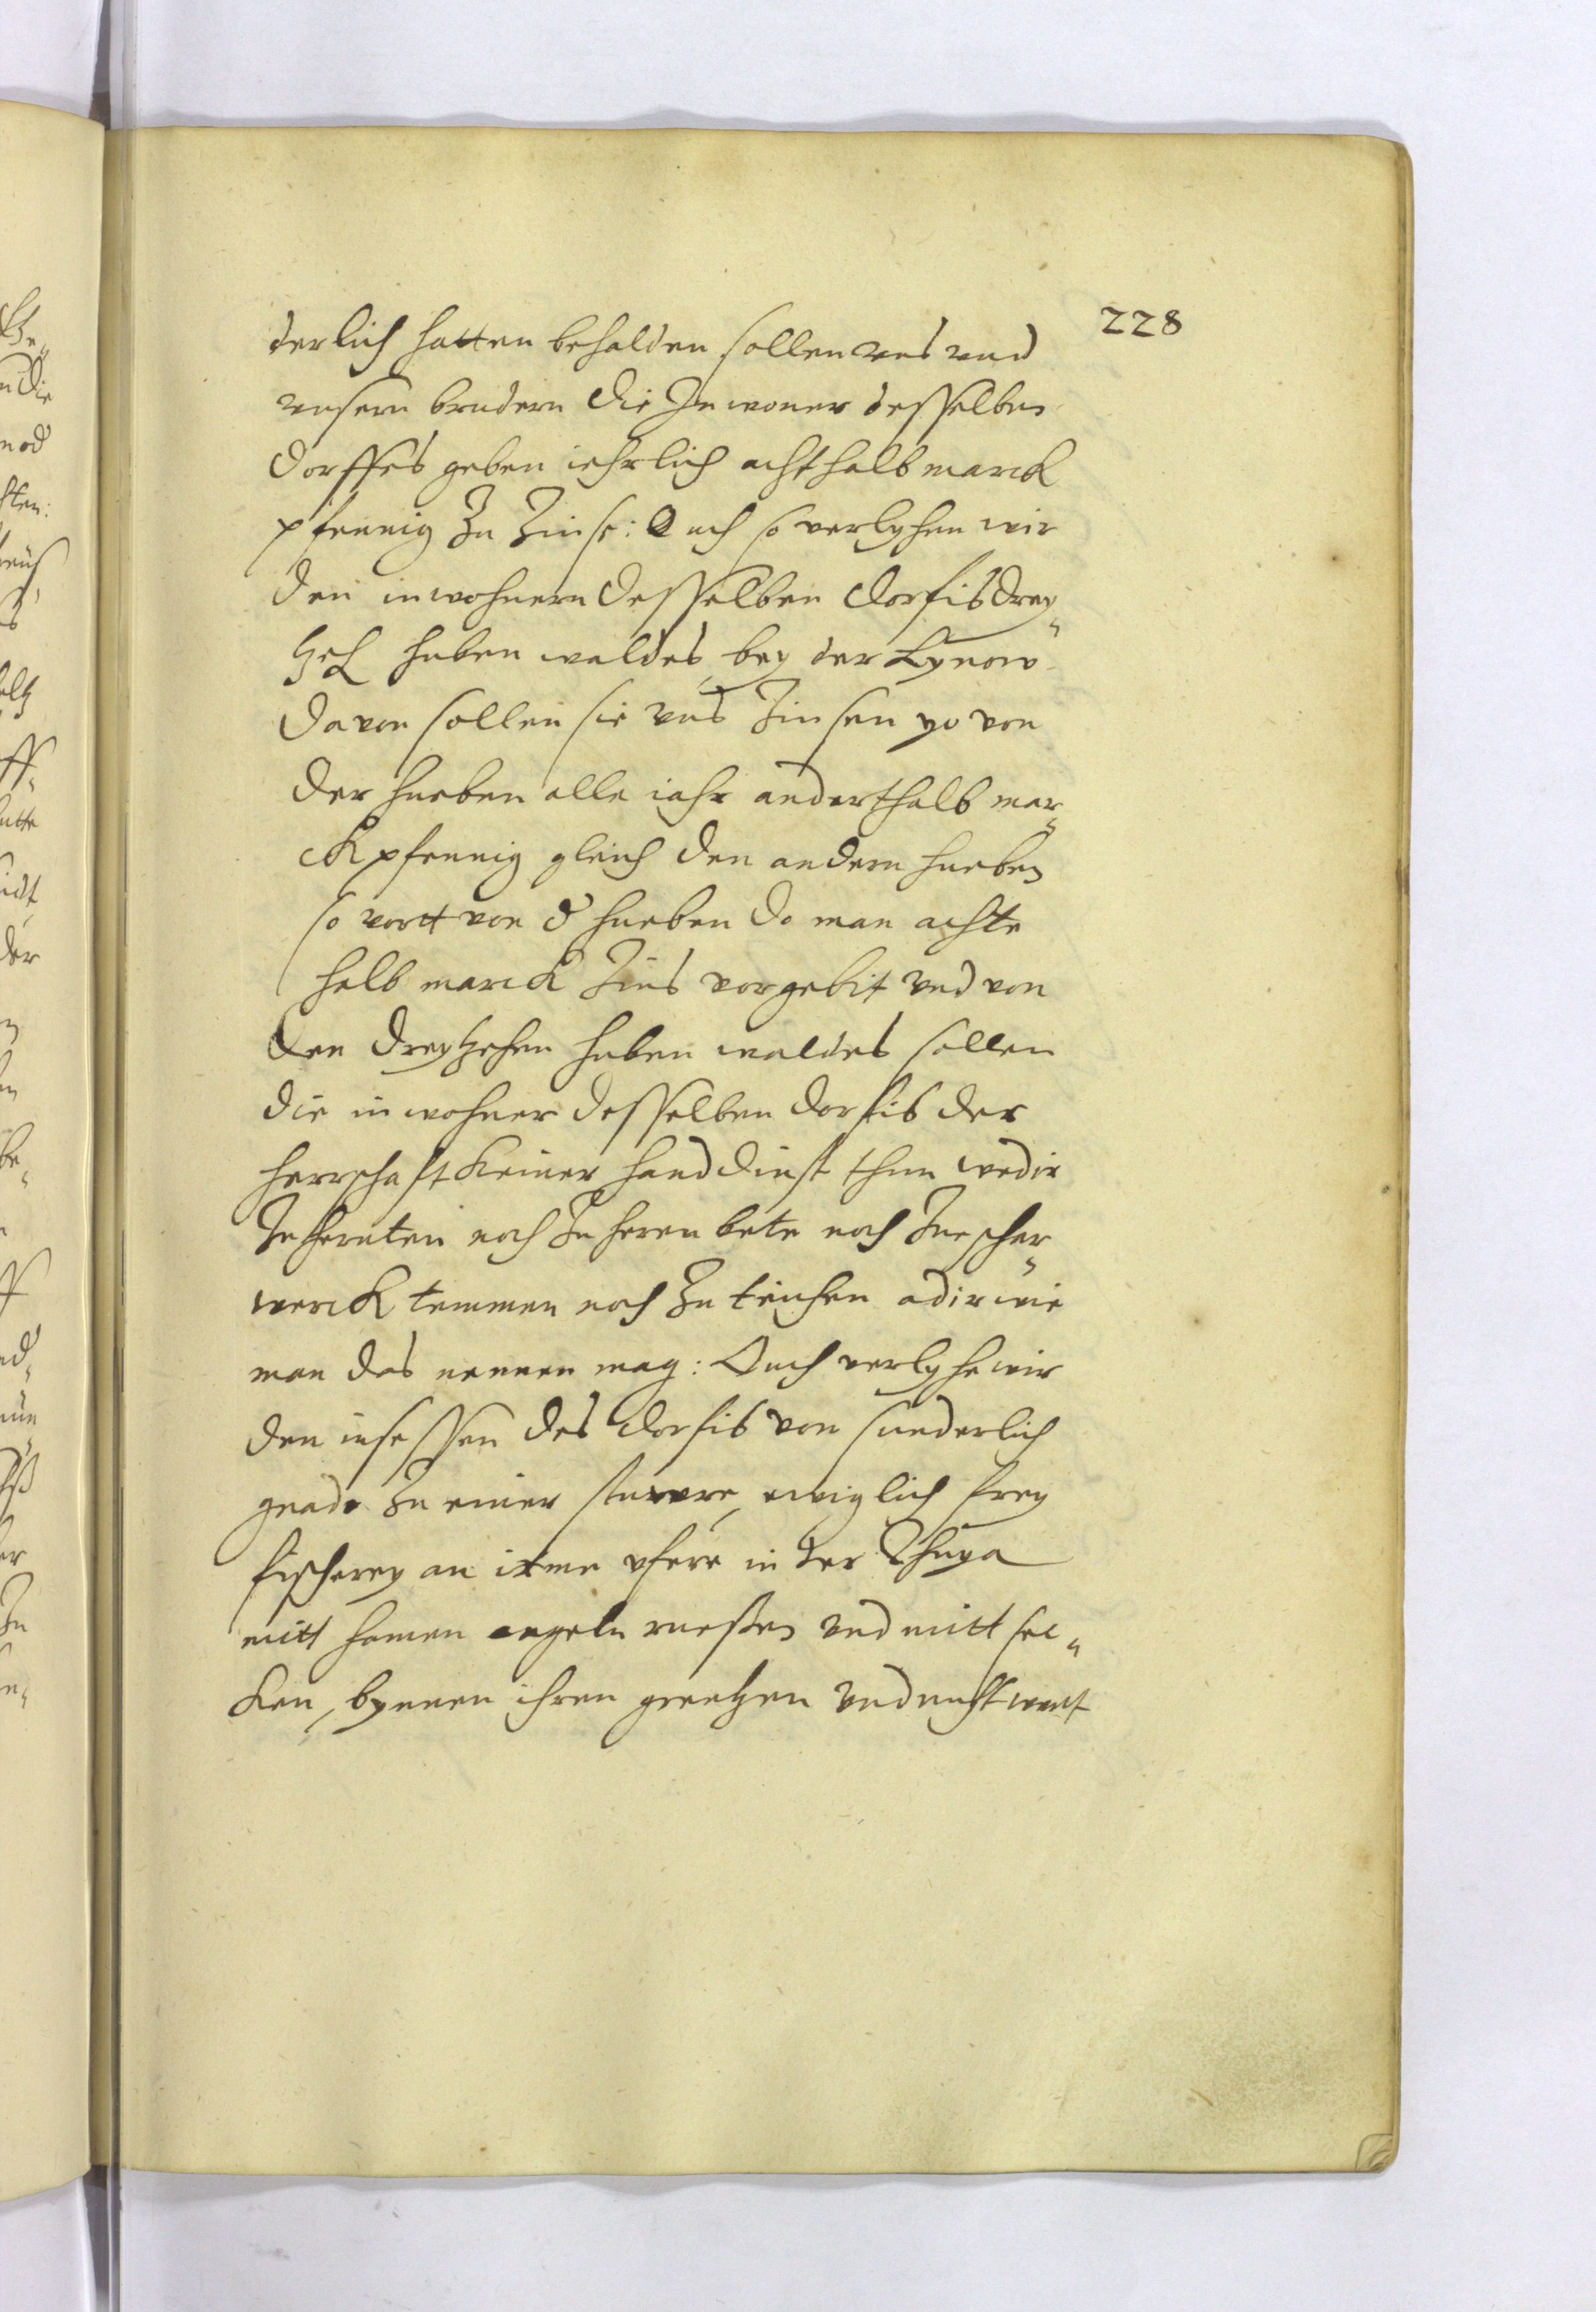 228
derlich hatten behalden sollen uns vnd
vnsern brudern die Inwoner desselben
dorffes geben iehrlich achthalb marck
pfennig Zu Zinse: Ouch so verlyhen wir
den inwohnern desselben dorfis drey„
zeh huben waldes, bey der Lynow
davon sollen sie vns Zinsen yo von
der hueben alle iahr anderthalb mar„
ck pfennig gleich den andern hueben
so vortt von d' hueben do man achte
halb marck Zins vorgebit vnd von
den dreytzehen huben waldes sollen
die inwohner desselben dorfis der
herrschaft keiner hand dinst thun wedir
In hernten noch In heren bete noch Zue schar„
werck temmen noch Zu teichen adir wie
man das nennen mag: Ouch verlyhe wir
den insessen des dorfis von sunderlich
gnade Zu einer stewre, ewiglich frey
fischerey an irme vfere in der Thuya
mitt hamen angeln wurffen vnd mitt sec„
ken, bynnen ihren grentzen vnd nicht weit